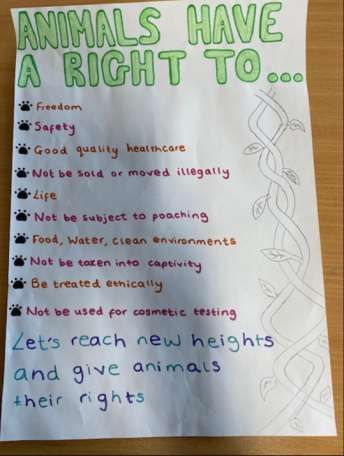 ANIMALS HAVE
A RIGHT TO...
Freedom
Safety
Good quality healthcare
Not be sold or moved illegally
Life
Not be subject to poaching
Food, Water, Clean environments
Not be taken into captivity
Be treated ethically
Not be used for cosmetic testing
Let's reach new heights
and give animals
their rights